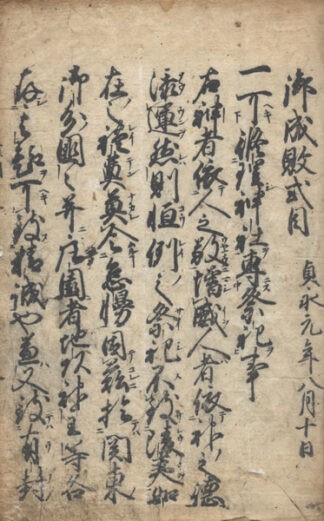 御成敗式目
貞永元年八月十日
一可修理神社専祭祀事
右神者依人之敬増威人者依神之徳
添運然則恒例之祭祀不致陵夷如
在之禮奠莫令怠慢因茲於関東
御分國々并庄園者地頭神主等各
存其趣可致精誠也兼又致有封